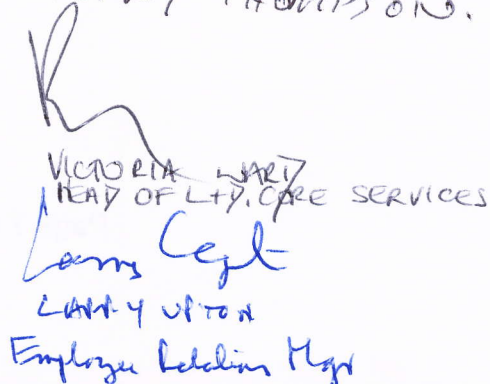 THOMPSON.
VICTORIA WARD
HEAD OF L+D. CARE SERVICES
LARRY UPTON
Employee Relations Mgr